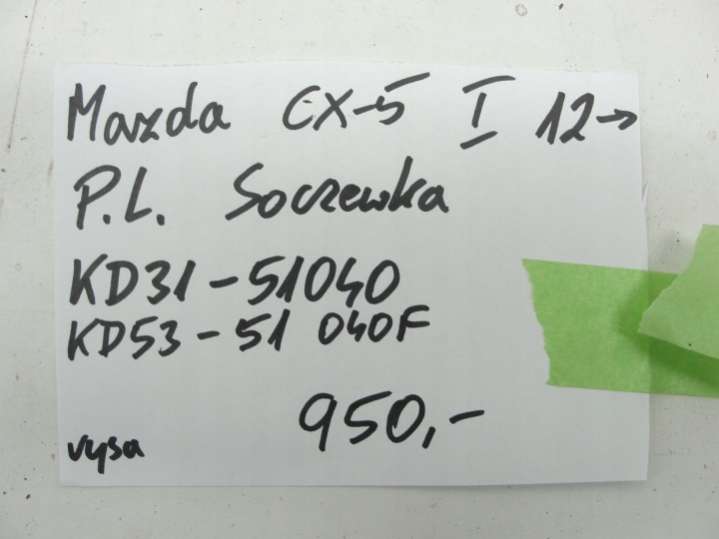 Mazda CX-5 I 12→
P.L. Soczewka
KD31-51040
KD53-51 040F
950,-
vysa